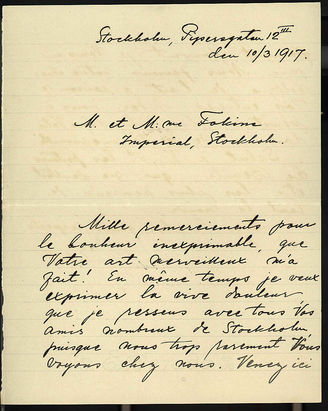 Stockholm, Pipersgatan 12 III
den 10/3 1917.
M. et M:me Fokine
Imperial, Stockholm.
Mille remerciements pour
le bonheur inexprimable, que
Votre art merveilleux m'a
fait! En même temps je veux
exprimer la vive douleur
que je ressens avec tous Vos
amis nombreux de Stockholm
puisque nous trop rarement Vous
voyons chez nous. Venez ici